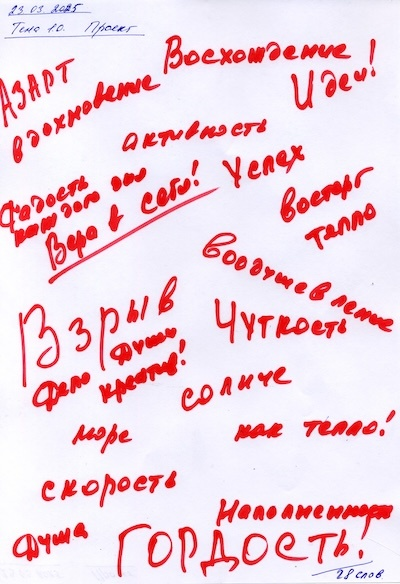 23.03.2025
Тема 10. Проект
Восхождение
АЗАРТ
Идеи!
вдохновение
активность
Успех
Радость
каждого дня
Вера в себя!
восторг
тепло
Воодушевление
Взрыв
Чуткость
Дело Души
креатив!
солнце
море
как тепло!
скорость
Наполненность
Душа
ГОРДОСТЬ!
28 слов